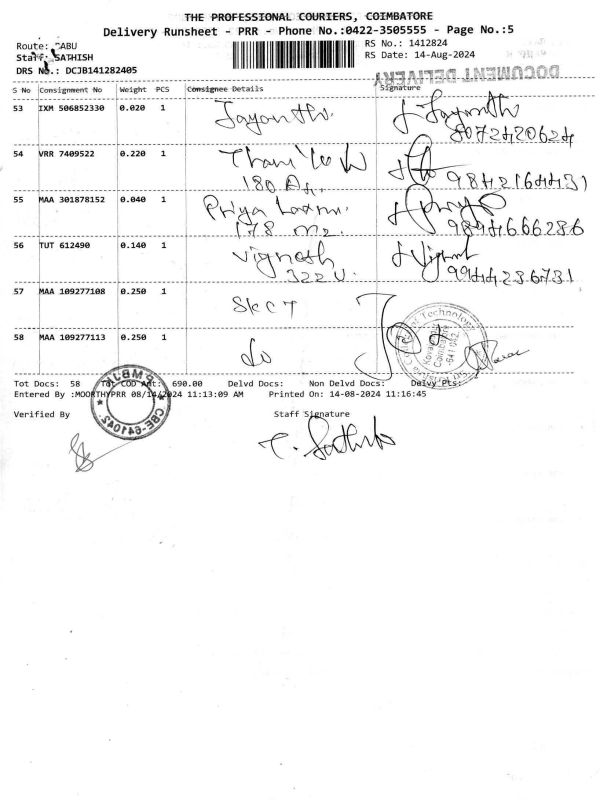 THE PROFESSIONAL COURIERS, COIMBATORE
Delivery Runsheet - PRR - Phone No.:0422-3505555 - Page No.:5
Route: BABU
Staff: SATHISH
DRS No.: DCJB141282405
RS No.: 1412824
RS Date: 14-Aug-2024
DOCUMENT DELIVERY
S No Consignment No Weight PCS Consignee Details Signature
53 IXM 506852330 0.020 1 Jayanthi. Jayanthi
8072420624
54 VRR 7409522 0.220 1
180 A4. 9842164431
55 MAA 301878152 0.040 1 Priya Laxmi. Priya
178 M2 9894666286
56 TUT 612490 0.140 1 Vignesh Vignesh
322 U. 9944236731
57 MAA 109277108 0.250 1 SKCT
58 MAA 109277113 0.250 1 do
of Technology
Coimbatore
641 042
Tot Docs: 58 Tot COD Amt: 690.00 Delvd Docs: Non Delvd Docs: Delvy Pts:
Entered By :MOORTHYPRR 08/14/2024 11:13:09 AM Printed On: 14-08-2024 11:16:45
PMBJK
CBE-641042
Verified By Staff Signature
T. Sathish